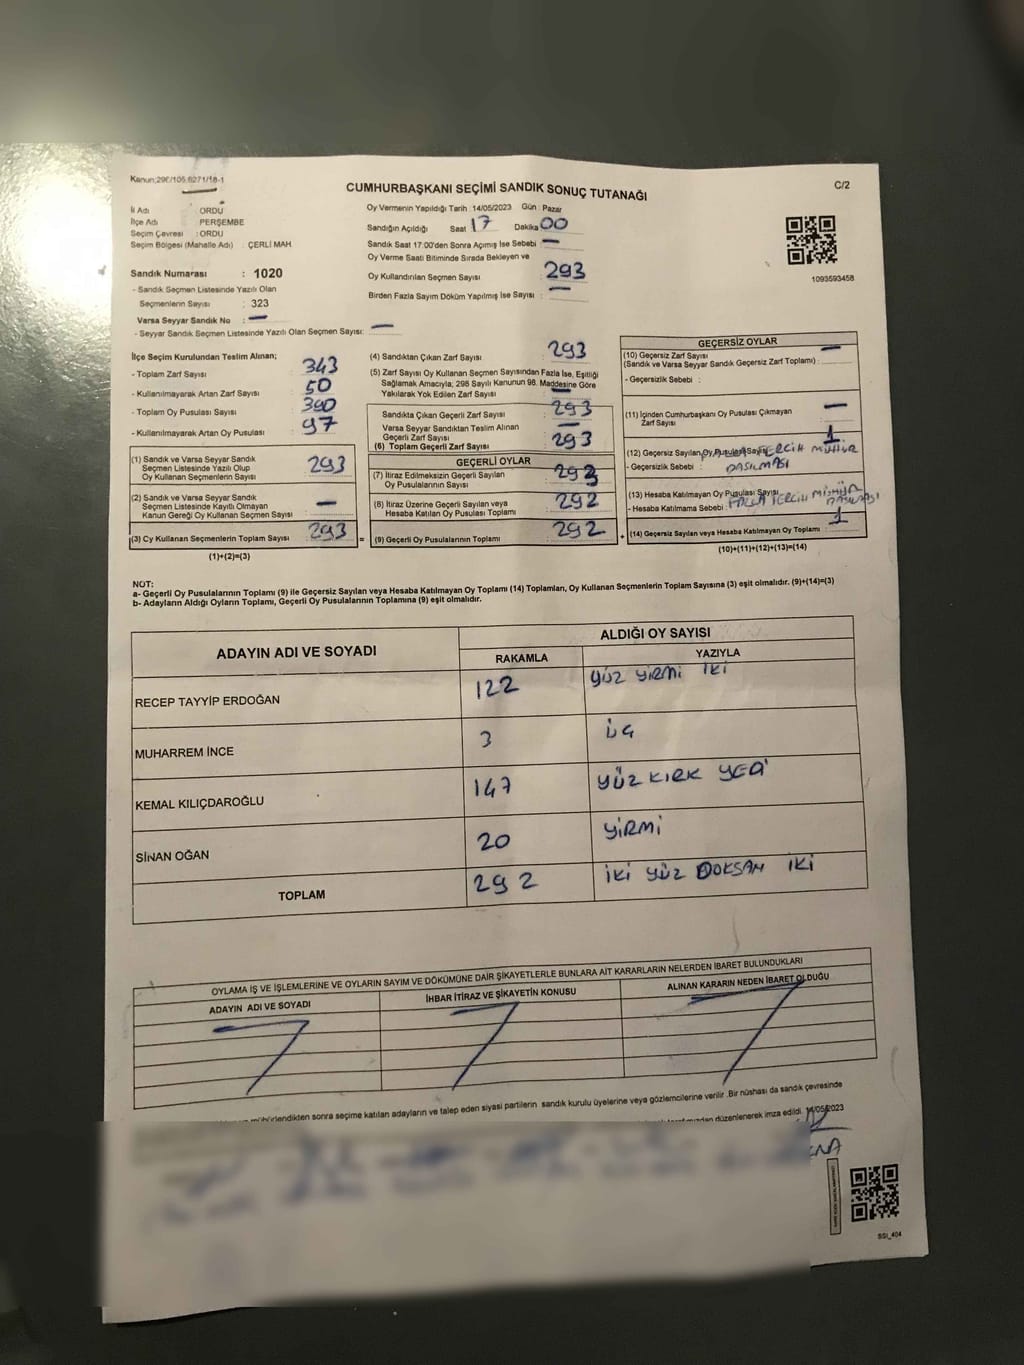 Kanun:298/105.6271/18-1
CUMHURBAŞKANI SEÇİMİ SANDIK SONUÇ TUTANAĞI
C/2
İl Adı : ORDU
İlçe Adı : PERŞEMBE
Seçim Çevresi : ORDU
Seçim Bölgesi (Mahalle Adı) : ÇERLİ MAH
Sandık Numarası : 1020
- Sandık Seçmen Listesinde Yazılı Olan
Seçmenlerin Sayısı : 323
Varsa Seyyar Sandık No : —
- Seyyar Sandık Seçmen Listesinde Yazılı Olan Seçmen Sayısı: —
Oy Vermenin Yapıldığı Tarih : 14/05/2023 Gün : Pazar
Sandığın Açıldığı Saat 17 Dakika 00
Sandık Saat 17:00'den Sonra Açımış İse Sebebi —
Oy Verme Saati Bitiminde Sırada Bekleyen ve
Oy Kullandırılan Seçmen Sayısı 293
Birden Fazla Sayım Döküm Yapılmış İse Sayısı : —
1093593458
İlçe Seçim Kurulundan Teslim Alınan;
- Toplam Zarf Sayısı 343
- Kullanılmayarak Artan Zarf Sayısı 50
- Toplam Oy Pusulası Sayısı 390
- Kullanılmayarak Artan Oy Pusulası 97
(1) Sandık ve Varsa Seyyar Sandık
Seçmen Listesinde Yazılı Olup
Oy Kullanan Seçmenlerin Sayısı 293
(2) Sandık ve Varsa Seyyar Sandık
Seçmen Listesinde Kayıtlı Olmayan
Kanun Gereği Oy Kullanan Seçmen Sayısı —
(3) Oy Kullanan Seçmenlerin Toplam Sayısı 293 =
(1)+(2)=(3)
(4) Sandıktan Çıkan Zarf Sayısı 293
(5) Zarf Sayısı Oy Kullanan Seçmen Sayısından Fazla İse, Eşitliği
Sağlamak Amacıyla, 298 Sayılı Kanunun 98. Maddesine Göre
Yakılarak Yok Edilen Zarf Sayısı : —
Sandıkta Çıkan Geçerli Zarf Sayısı 293
Varsa Seyyar Sandıktan Teslim Alınan
Geçerli Zarf Sayısı —
(6) Toplam Geçerli Zarf Sayısı 293
GEÇERLİ OYLAR
(7) İtiraz Edilmeksizin Geçerli Sayılan
Oy Pusulalarının Sayısı
(8) İtiraz Üzerine Geçerli Sayılan veya
Hesaba Katılan Oy Pusulası Toplamı 292
(9) Geçerli Oy Pusulalarının Toplamı 292 +
GEÇERSİZ OYLAR
(10) Geçersiz Zarf Sayısı
(Sandık ve Varsa Seyyar Sandık Geçersiz Zarf Toplamı) : —
- Geçersizlik Sebebi :
(11) İçinden Cumhurbaşkanı Oy Pusulası Çıkmayan
Zarf Sayısı —
(12) Geçersiz Sayılan Oy Pusulası Sayısı 1
- Geçersizlik Sebebi : FAZLA TERCİH MÜHÜR
BASILMASI
(13) Hesaba Katılmayan Oy Pusulası Sayısı
- Hesaba Katılmama Sebebi : FAZLA TERCİH MÜHÜR
BASILMASI
(14) Geçersiz Sayılan veya Hesaba Katılmayan Oy Toplamı 1
(10)+(11)+(12)+(13)=(14)
NOT:
a- Geçerli Oy Pusulalarının Toplamı (9) ile Geçersiz Sayılan veya Hesaba Katılmayan Oy Toplamı (14) Toplamları, Oy Kullanan Seçmenlerin Toplam Sayısına (3) eşit olmalıdır. (9)+(14)=(3)
b- Adayların Aldığı Oyların Toplamı, Geçerli Oy Pusulalarının Toplamına (9) eşit olmalıdır.
ADAYIN ADI VE SOYADI
ALDIĞI OY SAYISI
RAKAMLA YAZIYLA
RECEP TAYYİP ERDOĞAN 122 yüz yirmi iki
MUHARREM İNCE 3 üç
KEMAL KILIÇDAROĞLU 147 yüz kırk yedi
SİNAN OĞAN 20 yirmi
TOPLAM 292 iki yüz doksan iki
OYLAMA İŞ VE İŞLEMLERİNE VE OYLARIN SAYIM VE DÖKÜMÜNE DAİR ŞİKAYETLERLE BUNLARA AİT KARARLARIN NELERDEN İBARET BULUNDUKLARI
ADAYIN ADI VE SOYADI İHBAR İTİRAZ VE ŞİKAYETİN KONUSU ALINAN KARARIN NEDEN İBARET OLDUĞU
mühürlendikten sonra seçime katılan adayların ve talep eden siyasi partilerin sandık kurulu üyelerine veya gözlemcilerine verilir .Bir nüshası da sandık çevresinde
düzenlenerek imza edildi. 14/05/2023
SSI_404